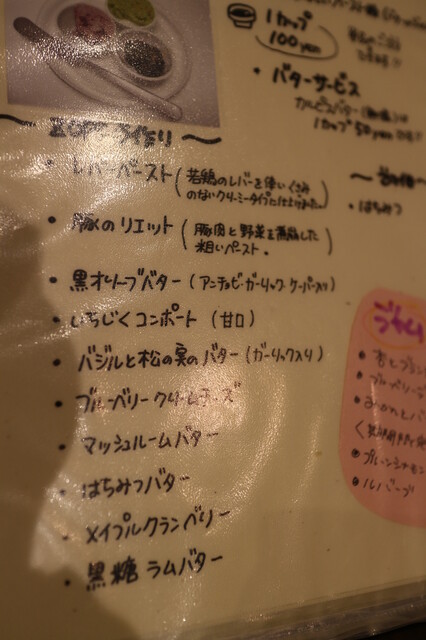 1カップ
100yen
・バターサービス
カルピスバター(無塩)は
1カップ50yen
~ZOPF手作り~
・レバーペースト(若鶏のレバーを使いくさみ
のないクリーミータイプに仕上げました)
・豚のリエット(豚肉と野菜を煮込した
粗いペースト。)
・黒オリーブバター(アンチョビ・ガーリック・ケーパー入り)
・いちじくコンポート(甘口)
・バジルと松の実のバター(ガーリック入り)
・ブルーベリークリームチーズ
・マッシュルームバター
・はちみつバター
・メイプルクランベリー
・黒糖ラムバター
・はちみつ
ジャム
・ブルーベリー
・プルーンシナモン
・ルバーブ